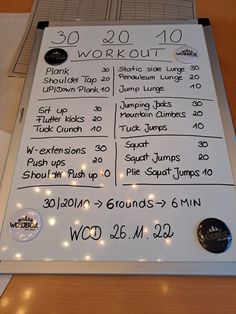 30 20 10
WORKOUT
WODBOX
Plank 30
Shoulder Tap 20
UP/Down Plank 10
Static side Lunge 30
Penduleum Lunge 20
Jump Lunge 10
Sit up 30
Flutter kicks 20
Tuck Crunch 10
Jumping Jacks 30
Mountain Climbers 20
Tuck Jumps 10
W-extensions 30
Push ups 20
Shoulder Push up 10
Squat 30
Squat Jumps 20
Plie Squat Jumps 10
30/20/10 → 6rounds → 6 MIN
WODBOX
WOD 26.11.22